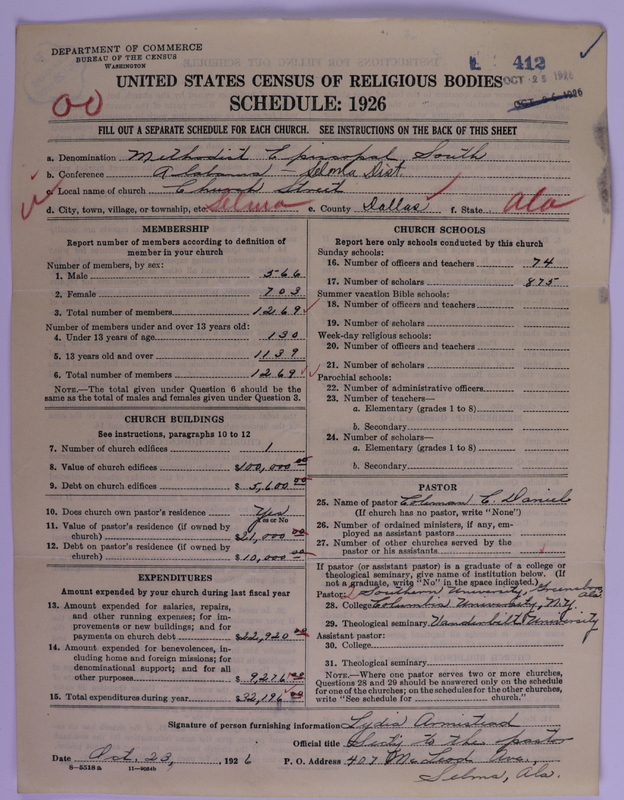 DEPARTMENT OF COMMERCE
BUREAU OF THE CENSUS
WASHINGTON
L 412
OCT 26 1926
UNITED STATES CENSUS OF RELIGIOUS BODIES
SCHEDULE: 1926
00
FILL OUT A SEPARATE SCHEDULE FOR EACH CHURCH. SEE INSTRUCTIONS ON THE BACK OF THIS SHEET
a. Denomination Methodist Episcopal South
b. Conference Alabama - Selma Dist.
c. Local name of church Church Street
d. City, town, village, or township, etc. Selma e. County Dallas f. State Ala
MEMBERSHIP
Report number of members according to definition of
member in your church
Number of members, by sex:
1. Male 566
2. Female 703
3. Total number of members 1269
Number of members under and over 13 years old:
4. Under 13 years of age 130
5. 13 years old and over 1139
6. Total number of members 1269
NOTE.—The total given under Question 6 should be the
same as the total of males and females given under Question 3.
CHURCH BUILDINGS
See instructions, paragraphs 10 to 12
7. Number of church edifices 1
8. Value of church edifices $100,000 00
9. Debt on church edifices $ 5,600 00
10. Does church own pastor's residence Yes
Yes or No
11. Value of pastor's residence (if owned by
church) $21,000 00
12. Debt on pastor's residence (if owned by
church) $10,000 00
EXPENDITURES
Amount expended by your church during last fiscal year
13. Amount expended for salaries, repairs,
and other running expenses; for im-
provements or new buildings; and for
payments on church debt $22,920 00
14. Amount expended for benevolences, in-
cluding home and foreign missions; for
denominational support; and for all
other purposes $ 9276 00
15. Total expenditures during year $32,196 00
CHURCH SCHOOLS
Report here only schools conducted by this church
Sunday schools:
16. Number of officers and teachers 74
17. Number of scholars 875
Summer vacation Bible schools:
18. Number of officers and teachers
19. Number of scholars
Week-day religious schools:
20. Number of officers and teachers
21. Number of scholars
Parochial schools:
22. Number of administrative officers
23. Number of teachers—
a. Elementary (grades 1 to 8)
b. Secondary
24. Number of scholars—
a. Elementary (grades 1 to 8)
b. Secondary
PASTOR
25. Name of pastor Coleman C. Daniels
(If church has no pastor, write "None")
26. Number of ordained ministers, if any, em-
ployed as assistant pastors
27. Number of other churches served by the
pastor or his assistants
If pastor (or assistant pastor) is a graduate of a college or
theological seminary, give name of institution below. (If
not a graduate, write "No" in the space indicated.)
Pastor: Southern University, Greensboro Ala.
28. College Columbia University, N.Y.
29. Theological seminary Vanderbilt University
Assistant pastor:
30. College
31. Theological seminary
NOTE.—Where one pastor serves two or more churches,
Questions 28 and 29 should be answered only on the schedule
for one of the churches; on the schedules for the other churches,
write "See schedule for church."
Signature of person furnishing information Lydia Armistead
Official title Sec'ty to the pastor
Date Oct. 23, 1926 P. O. Address 407 McLeod Ave.
8—5518a 11—9024b
Selma, Ala.